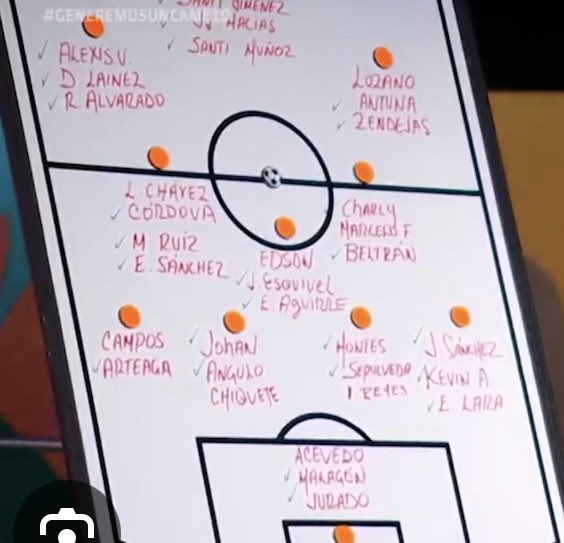 #GENEREMOSUNCAMBIO
SANTI JIMÉNEZ
J.J. MACIAS
SANTI MUÑOZ
ALEXIS V.
D. LAINEZ
R. ALVARADO
LOZANO
ANTUNA
ZENDEJAS
L. CHÁVEZ
CÓRDOVA
M RUIZ
E. SÁNCHEZ
CHARLY
MARCELO F
BELTRÁN
EDSON
J. ESQUIVEL
E. AGUIRRE
CAMPOS
ARTEAGA
JOHAN
ANGULO
CHIQUETE
MONTES
SEPULVEDA
I REYES
J. SÁNCHEZ
KEVIN A
E LARA
ACEVEDO
MALAGÓN
JURADO